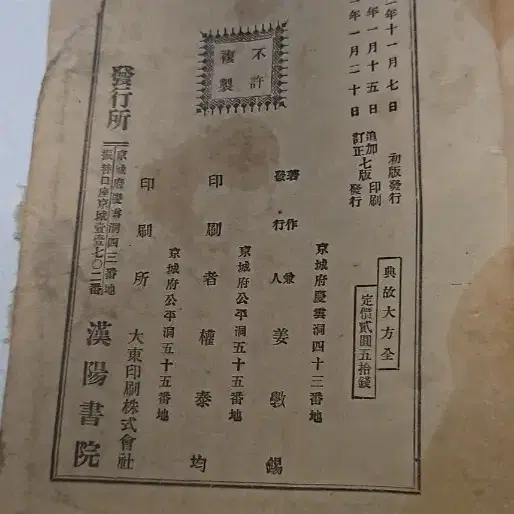 年十一月七日 初版發行
年一月十五日 追加 七版 印刷
年一月二十日 訂正 發行
典故大方全
定價貳圓五拾錢
京城府慶雲洞四十三番地
著作兼發行人 姜斅錫
京城府公平洞五十五番地
印刷者 權泰均
京城府公平洞五十五番地
印刷所 大東印刷株式會社
不許
複製
發行所
京城府慶雲洞四三番地
振替口座京城壹壹七〇二番
漢陽書院